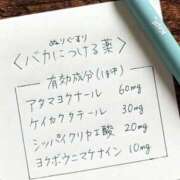 ぬりぐすり
〈バカにつける薬〉
有効成分(1gあたり)
アタマヨクナール 60mg
ケイカクタテール 30mg
シッパイクリカエ酸 20mg
ヨクボウニマケナイン 10mg